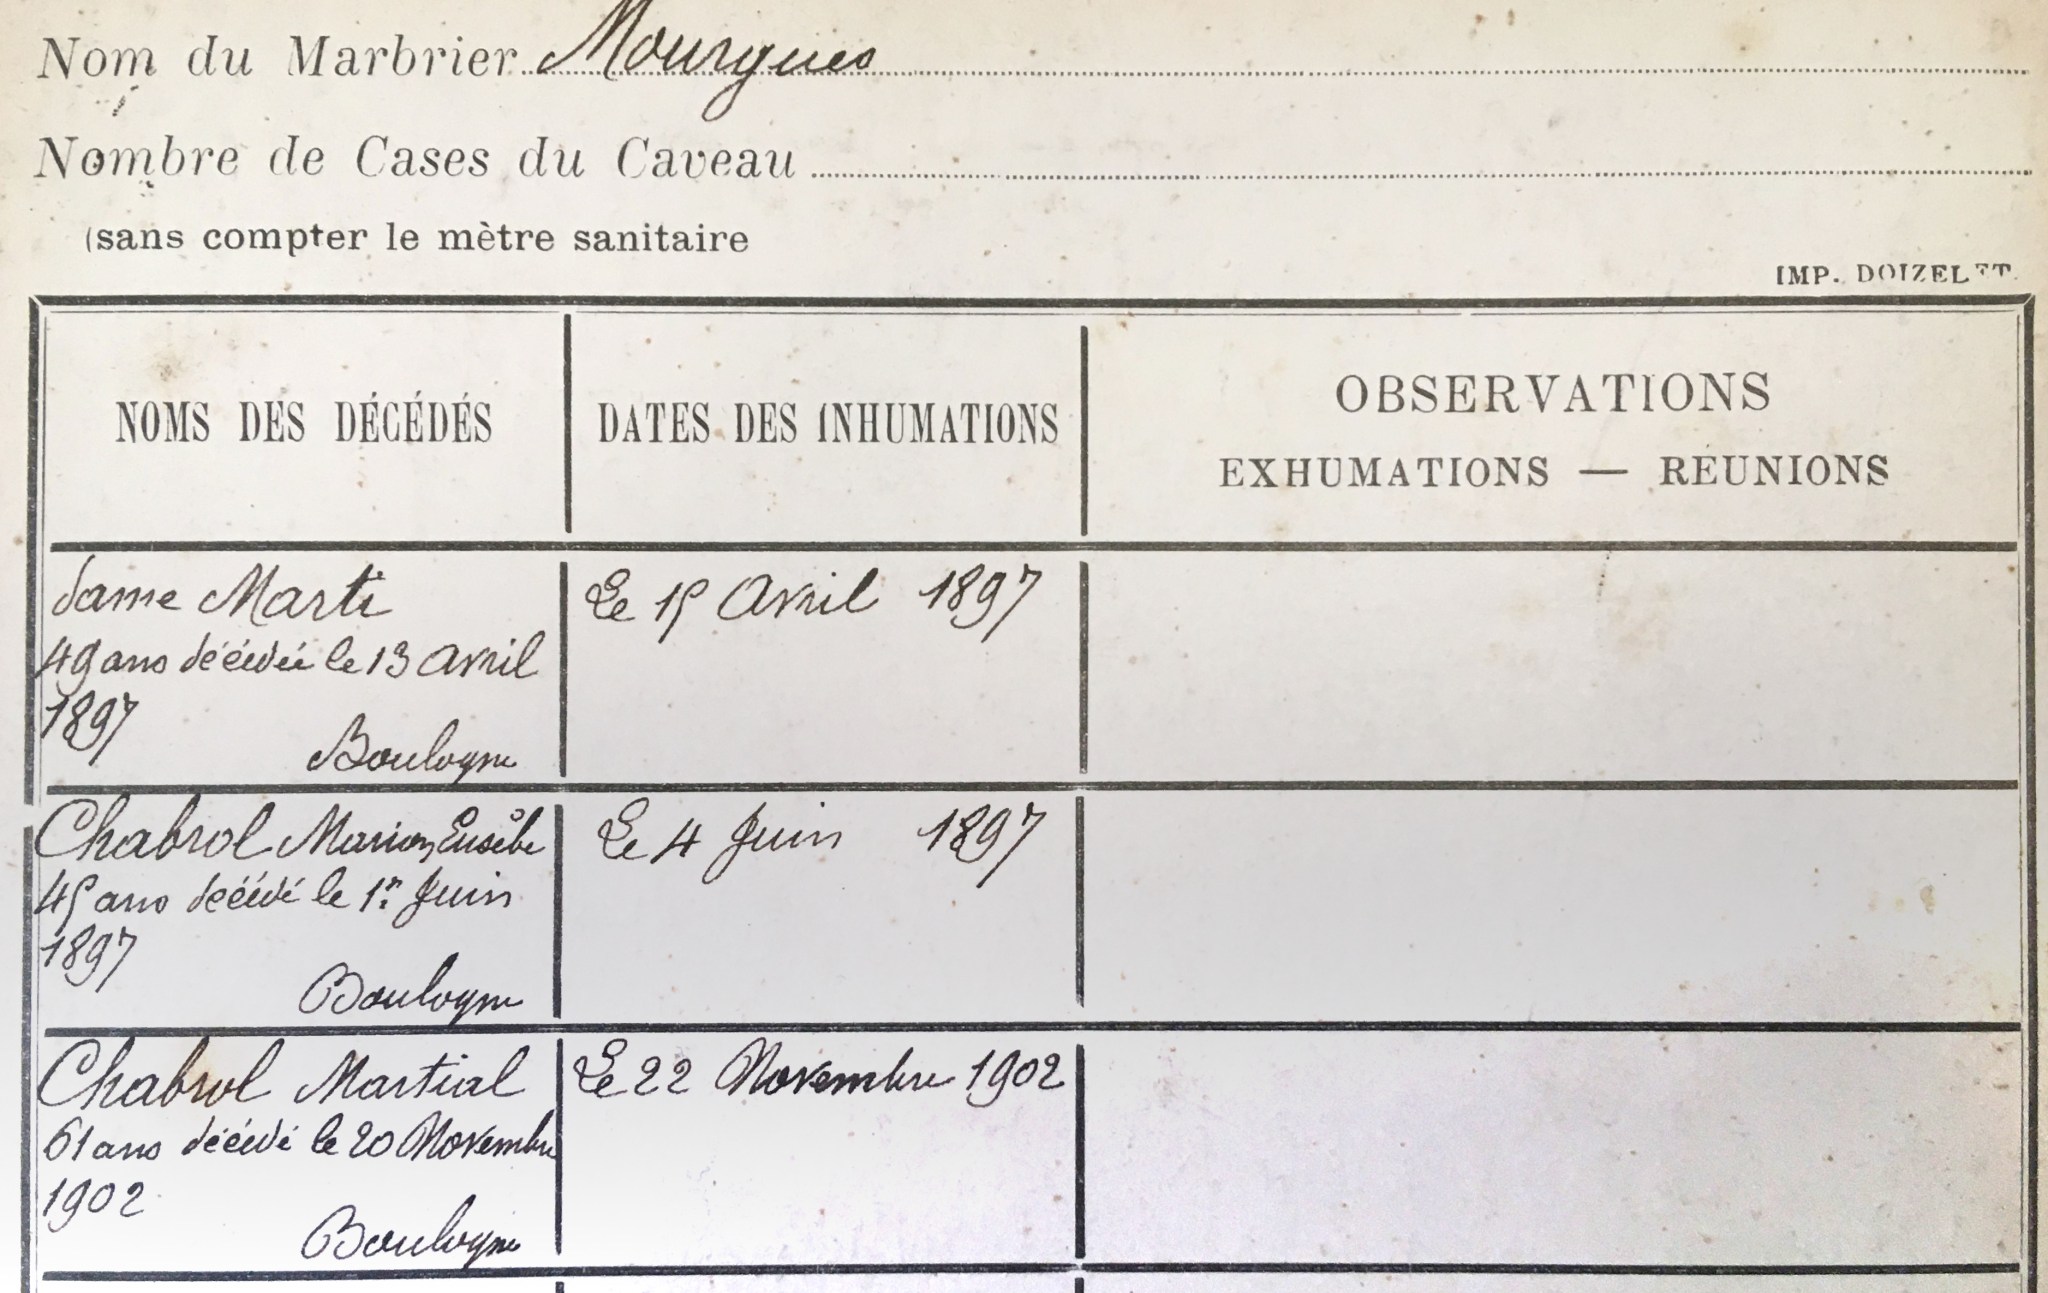 Nom du Marbrier Mourgues
Nombre de Cases du Caveau
(sans compter le mètre sanitaire
IMP. DOIZELET
NOMS DES DÉCÉDÉS
DATES DES INHUMATIONS
OBSERVATIONS
EXHUMATIONS — RÉUNIONS
dame Marti
49 ans décédée le 13 Avril
1897
Boulogne
Le 15 Avril 1897
Chabrol Marion Eusèbe
45 ans décédé le 1er Juin
1897
Boulogne
Le 4 Juin 1897
Chabrol Martial
61 ans décédé le 20 Novembre
1902
Boulogne
Le 22 Novembre 1902